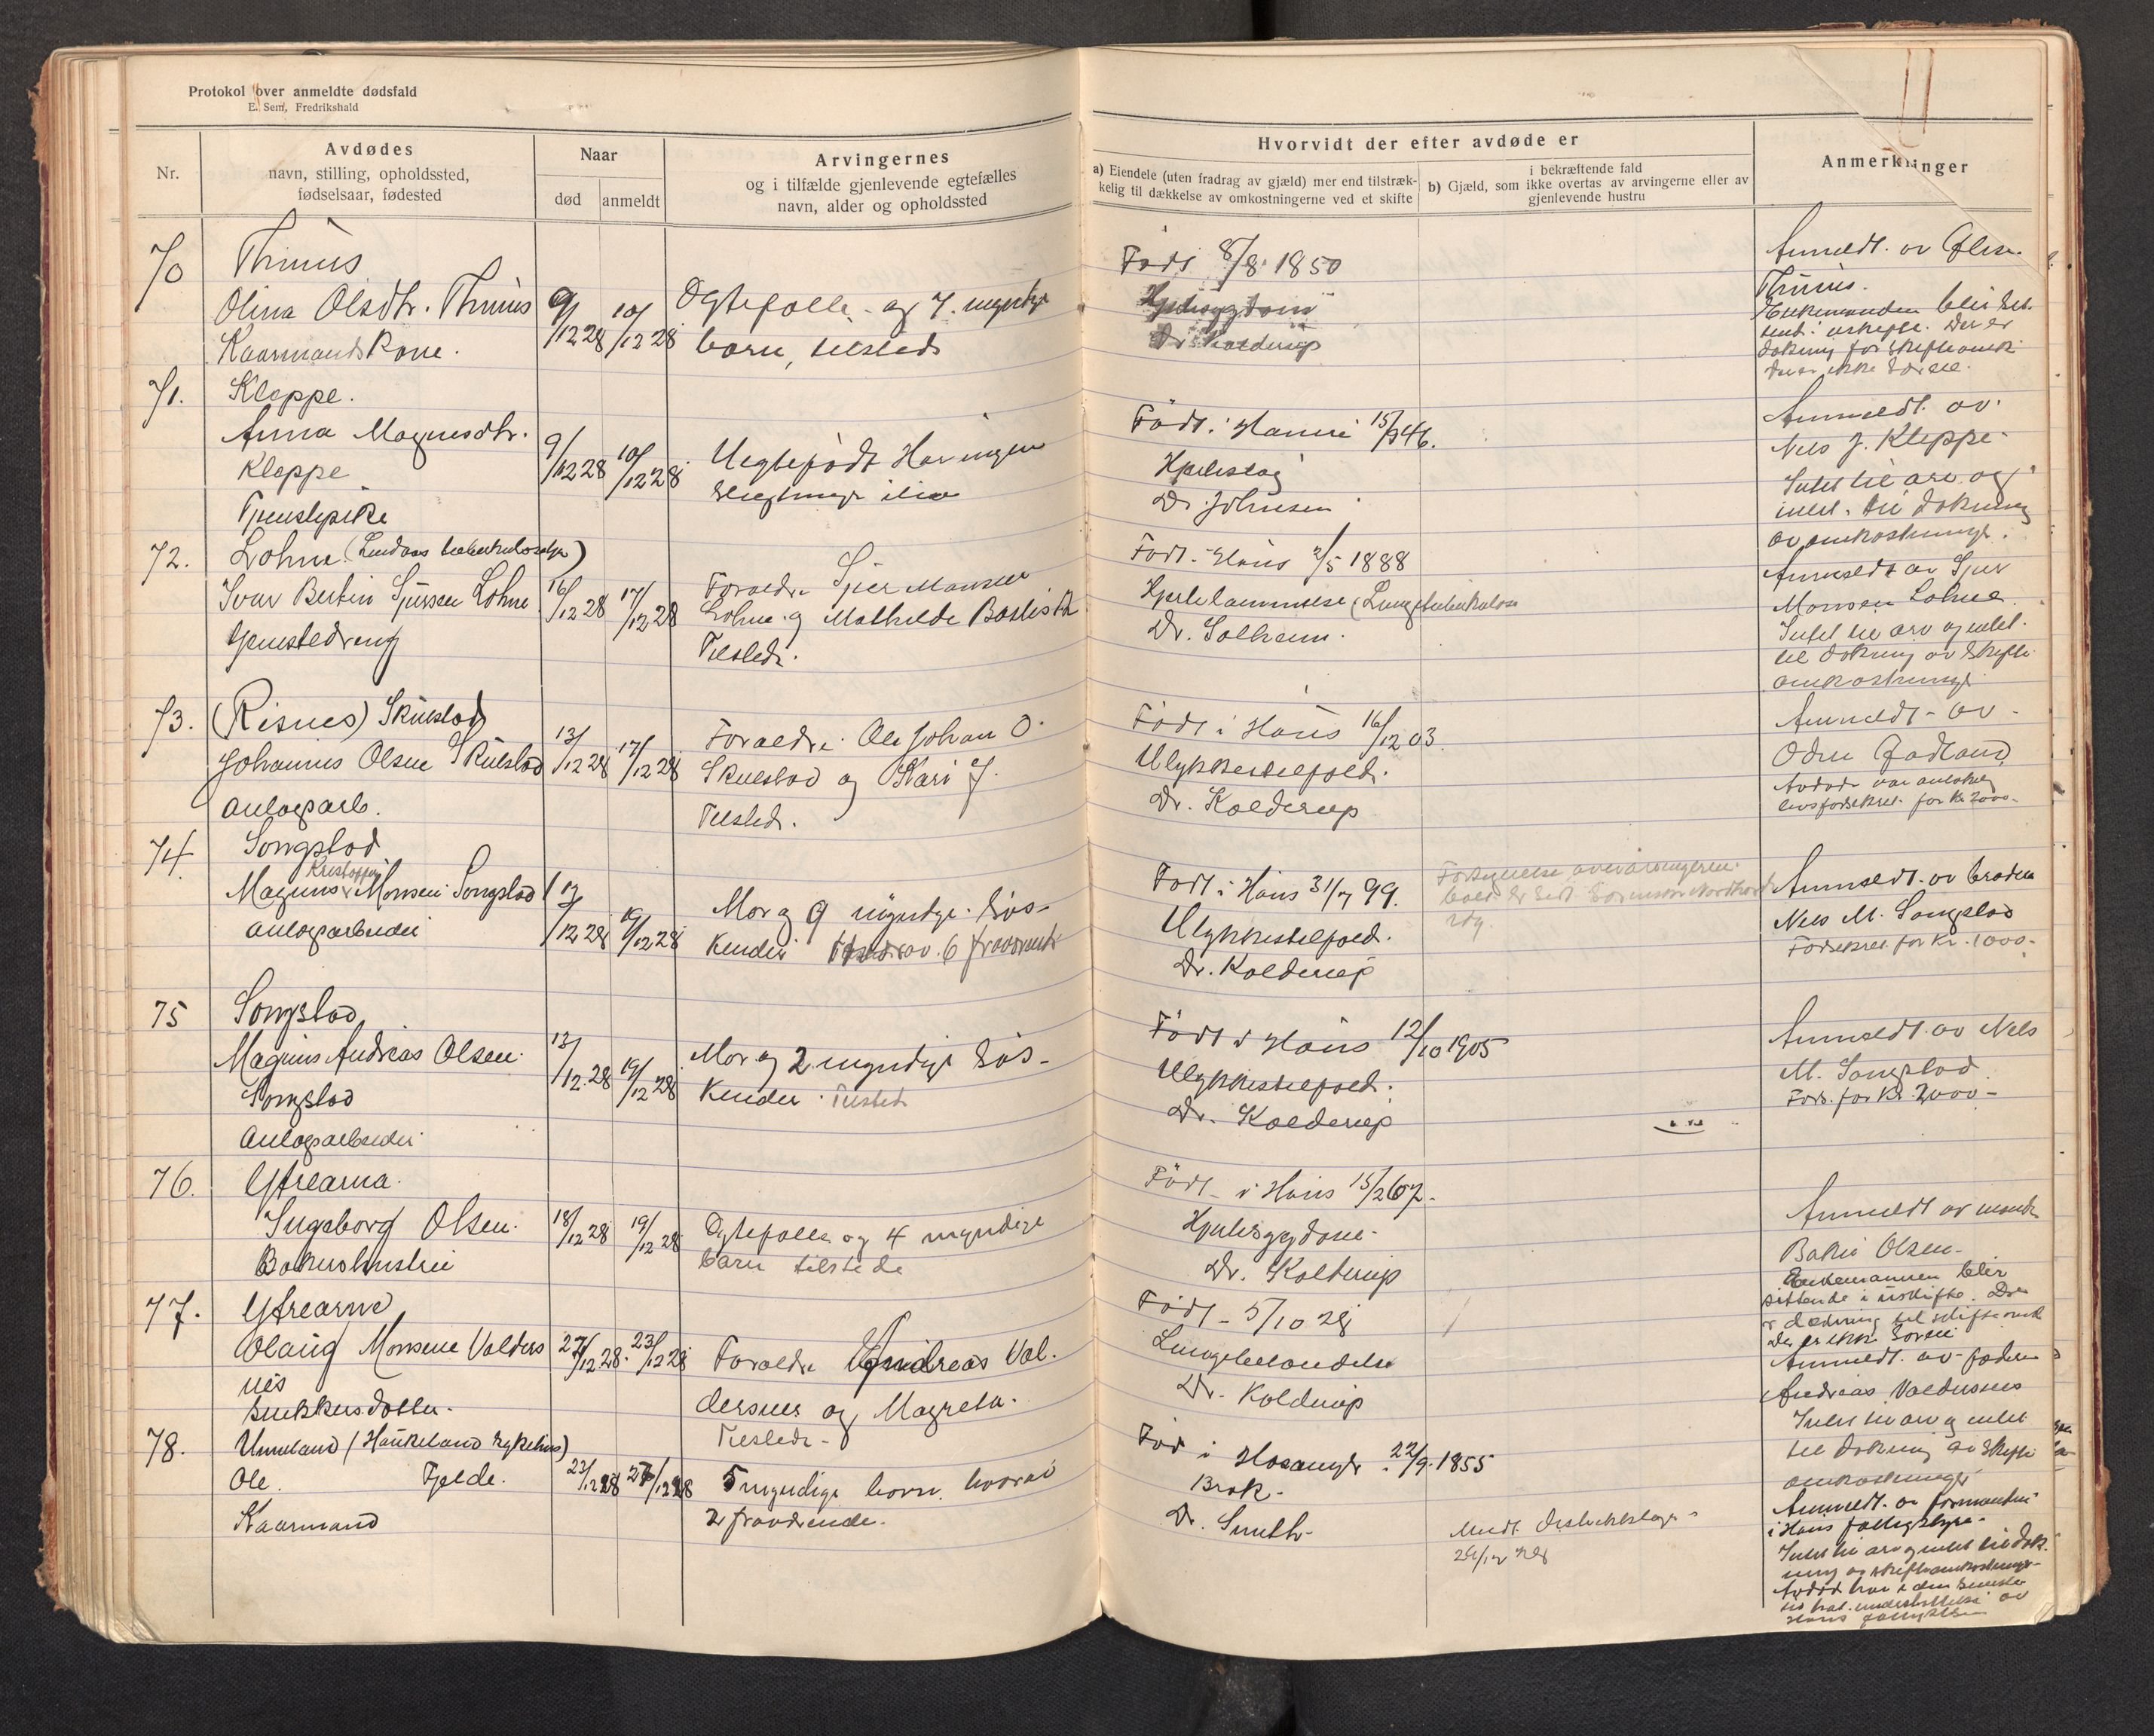 Protokol over anmeldte dødsfald
E. Sem, Fredrikshald
Nr.
Avdødes
navn, stilling, opholdssted,
fødselsaar, fødested
Naar
død
anmeldt
Arvingernes
og i tilfælde gjenlevende egtefælles
navn, alder og opholdssted
Hvorvidt der efter avdøde er
a) Eiendele (uten fradrag av gjæld) mer end tilstræk-
kelig til dækkelse av omkostningerne ved et skifte
i bekræftende fald
b) Gjæld, som ikke overtas av arvingerne eller av
gjenlevende hustru
Anmerkninger
70
Thunis
Olina Olsdtr. Thunis
Kaarmandskone.
9/12 28
10/12 28
Egtefolle og 7 myndige
barn, tilsteds
Født 8/8 1850
Hjertesygdom
Dr Kolderup
Anmeldt. av
Thunis.
Enkemanden blir sit-
tende i uskifte. Der er
dækning for skifteomk.
Der er ikke særeie.
71.
Kleppe.
Anna Magnesdtr.
Kleppe
Tjenestepike
9/12 28
10/12 28
Uegtefødt Har ingen
Født i Hamre 15/9 46.
Hjerteslag
Dr. Johnsen
Anmeldt. av
Nels J. Kleppe
Intet til arv og
intet til dækning
av omkostninge.
72.
Lohne (Lindaas tuberkuloseh)
Ivar Bertin Sjursen Lohne
tjenestedreng
16/12 28
17/12 28
Forældre Sjur Monsen
Lohne og Mathilde
Tilsteds.
Født. Haus 2/5 1888
Hjertelammelse (Lungetuberkulose
Dr. Solheim.
Anmeldt av Sjur
Monsen Lohne
Intet til arv og intet
til dækning av skifte
omkostninge
73.
(Risnes) Skulstad
Johannes Olsen Skulstad
anlægsarb.
13/12 28
17/12 28
Forældre Ole Johan O.
Skulstad og Kari J.
Tilsteds.
Født i Haus 16/12 03.
Ulykkestilfæld.
Dr. Kolderup
Anmeldt. av
Odin Gadland
Avdøde var
livsforsikret for Kr 2000-
74.
Songstad
Kristoffer
Magnus Monsen Songstad
anlægsarbeider
13/12 28
19/12 28
Mor og 9 myndige søs-
kender hvorav 6 fraværende
Født i Haus 31/7 99.
Ulykkestilfæld.
Dr. Kolderup
Anmeldt. av broderen
Nels M. Songstad
Forsikret for Kr. 1000-
75
Songstad
Magnus Andreas Olsen
Songstad
Anlægsarbeider
13/12 28
19/12 28
Mor og 2 myndige søs-
kender. Tilsteds
Født i Haus 12/10 1905
Ulykkestilfæld.
Dr. Kolderup
Anmeldt. av Nels
M. Songstad.
Fors. for Kr. 2000-
76.
Ytrearna.
Ingeborg Olsen.
Bakerhustru
18/12 28
19/12 28
Egtefolle og 4 myndige
barn tilstede
Født i Haus 15/2 67.
Hjertesygdom
Dr. Kolderup
Anmeldt av manden
Baker Olsen.
Enkemannen blir
sittende i uskifte. Der
er dækning til skifteomk
Der er ikke særeie
77.
Ytrearne
Olaug Monsine Valders
nes
snekkersdatter.
23/12 28
Forældre Andreas Val.
dersnes og Magreta.
Tilsteds
Født 5/10 28
Lungebetændelse
Dr. Kolderup
Anmeldt. av faderen
Andreas Valdersnes
Intet til arv og intet
til dækning av skifte
omkostninger
78.
Unneland (Haukeland sykehus)
Ole Fjelde.
Kaarmand
23/12 28
27/12 28
5 myndige barn, hvorav
2 fraværende.
Fød i Hosanger 22/9 1855
Brok.
Dr. Smith
29/12 28
Anmeldt. av formanden
i Haus fattigstyre.
Intet til arv og intet til dæk-
ning av skifteomkostninger.
Avdød har i den seneste
tid hat understøttelse av
Haus fattigvæsen